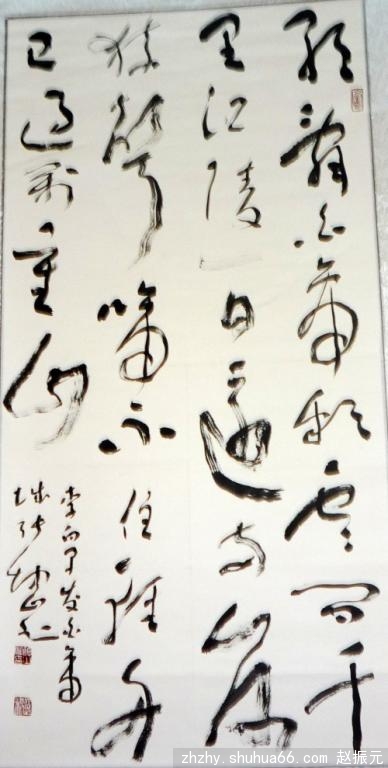 朝辞白帝彩云间千
里江陵一日还两岸
猿声啼不住轻舟
已过万重山
李白早发白帝
城张坤山书
zhzhy.shuhua66.com 赵振元